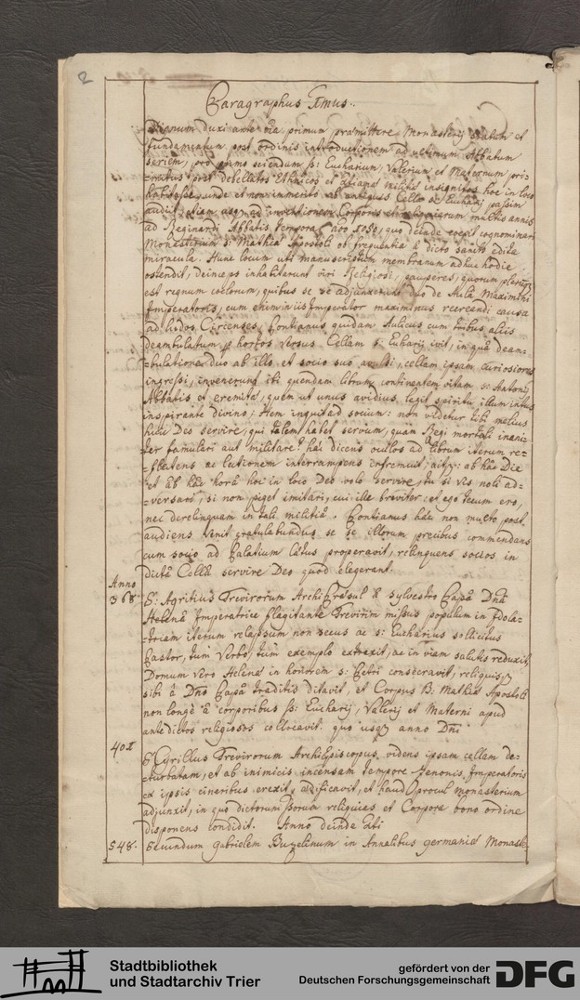 2
Paragraphus Imus.
Dignum duxi ante oia, primum præmittere Monasterij statum et
fundamentum, post ordinis introductionem ad ultimum Abbatum
seriem, pro primo sciendum S: Eucharium, Valerium et Maternum
post debellatos Ethnicos et militiæ insignitos hoc in loco
habitasse, unde et non immerito ab antiquis Cella Sti Eucharij passim
audit etiam usque ad inventionem Corporis multis annis
ad Reginardi Abbatis tempora, quo deinde cœpit cognominari
Monasterium S: Mathiæ Apostoli ob frequentia à dicto sancto edita
miracula. Hunc locum uti manuscriptum membranum adhuc hodie
ostendit, deinceps inhabitarunt viri Religiosi, pauperes, quorum
est regnum cœlorum, quibus se adjunxerunt duo de Aula Maximini
Imperatoris, cum enim in iis Imperator maximinus recreandi causa
ad ludos Circenses, Pontianus quidam Aulicus cum tribus aliis
deambulatum hortos versus Cellam S: Eucharij ivit, in qua deam-
=bulatione duo ab ille et socio suo avulsi, cellam ipsam curiosiores
ingressi, invenerunt ibi quendam librum continentem vitam S. Antonij
Abbatis et eremitæ, quem ut unus avidius legit spiritu illum intus
inspirante divino; Hem inquit ad socium: non videtur tibi melius
huic Deo servire, qui talem habet servum, quam Regi mortali inani-
ter famulari aut militare? hæc dicens oculos ad librum iterum re-
=flectens ac lectionem interrumpens infremuit, aitque: ab hac Die
et ab hac horâ hoc in loco Deo volo servire, tu si vis noli ad-
=versari, si non piget imitari, cui ille breviter: et ego tecum ero,
nec derelinquam in tali militia. Pontianus hæc non multo post
audiens venit gratulabundus se se illorum precibus commendans
cum socio ad Palatium lætus properavit, relinquens socios in
dicta Cella servire Deo quod elegerant.
Anno
368 S: Agritius Trevirorum ArchiPræsul à Sylvestro Papa Dna
Helena Imperatrice flagitante Trevirim missus populum in Idola-
=triam iterum relapsum non secus ac S: Eucharius sollicitus
Pastor, tum Verbo, tum exemplo extraxit, ac in viam salutis reduxit,
Domum vero Helenæ in honorem S: Petri consecravit, reliquiisque
sibi à Dno Papa traditis ditavit, et Corpus B. Mathiæ Apostoli
non longè à corporibus SS: Eucharij, Valerij et Materni apud
antedictos religiosos collocavit. quo usque anno Dni
402 S: Cyrillus Trevirorum ArchiEpiscopus videns ipsam cellam de-
=turbatam, et ab inimicis incensam tempore Zenonis Imperatoris
ex ipsis cineribus erexit, ædificavit, et haud procul monasterium
adjunxit, in quo dictorum Storum reliquias et Corpora bono ordine
disponens condidit. Anno deinde Xti
548. Secundum Gabrielem Buzelinum in Annalibus germaniæ Monast:
Stadtbibliothek
und Stadtarchiv Trier
gefördert von der
Deutschen Forschungsgemeinschaft
DFG